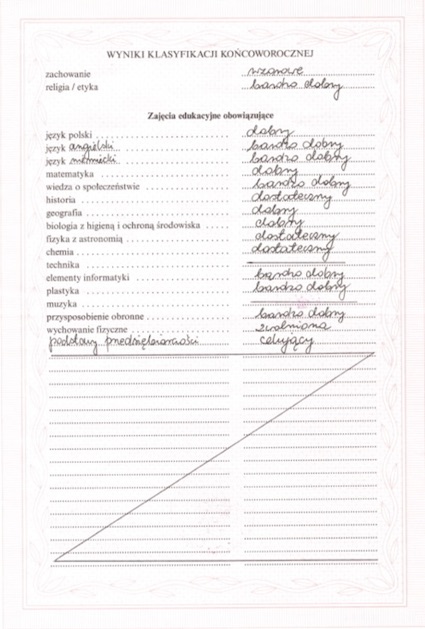 WYNIKI KLASYFIKACJI KOŃCOWOROCZNEJ
zachowanie wzorowe
religia / etyka bardzo dobry
Zajęcia edukacyjne obowiązujące
język polski dobry
język angielski bardzo dobry
język niemiecki bardzo dobry
matematyka dobry
wiedza o społeczeństwie bardzo dobry
historia dostateczny
geografia dobry
biologia z higieną i ochroną środowiska dobry
fizyka z astronomią dostateczny
chemia dostateczny
technika
elementy informatyki bardzo dobry
plastyka bardzo dobry
muzyka
przysposobienie obronne bardzo dobry
wychowanie fizyczne zwolniona
podstawy przedsiębiorczości celujący